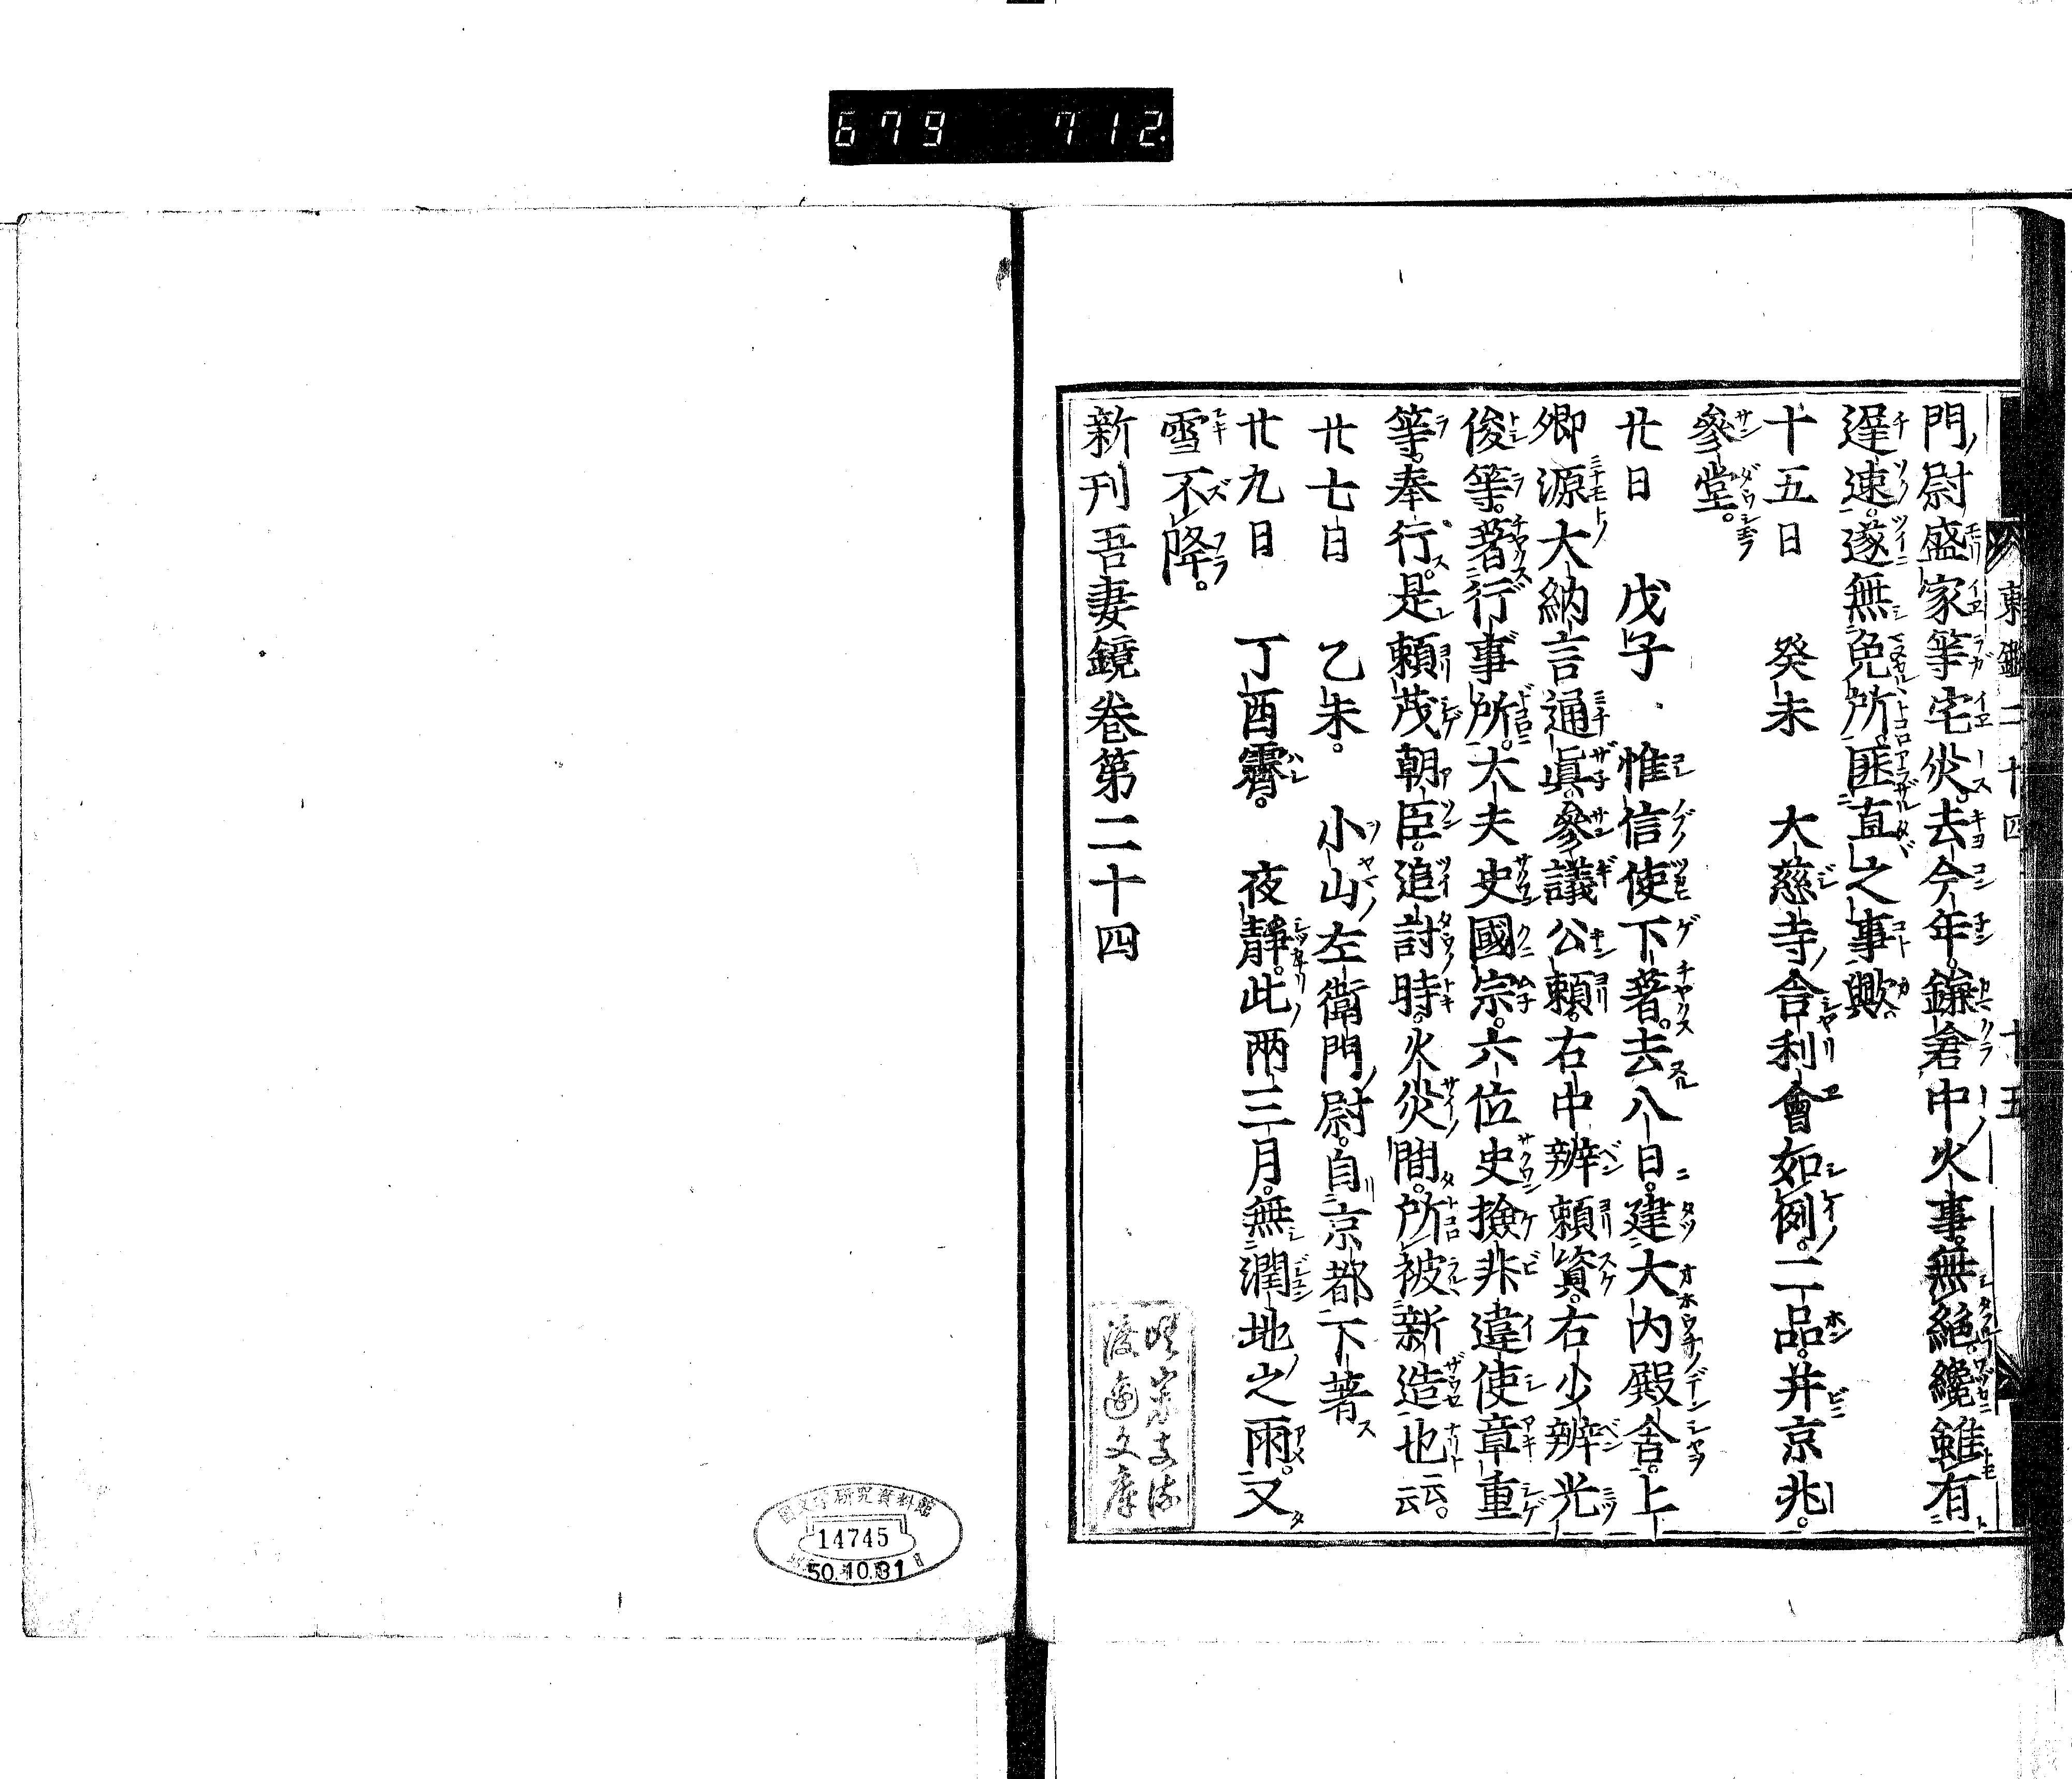 679 712.
東鑑二十四 十五
門尉盛家等宅災。去今年。鎌倉中火事。無絶。纔雖有
遅速。遂無免所。匪直之事歟
十五日 癸未 大慈寺舎利會如例。二品。并京兆。
參堂。
廿日 戊子 惟信使下著。去八日。建大内殿舎。上
卿源大納言通眞。參議公頼。右中辨頼資。右少辨光
俊等。著行事所。大夫史國宗。六位史撿非違使章重
等。奉行。是頼茂朝臣。追討時。火災間。所被新造也云云。
廿七日 乙未。 小山左衛門尉。自京都下著
廿九日 丁酉霽。 夜靜。此兩三月。無潤地之雨。又
雪不降。
新刊吾妻鏡巻第二十四
渡邉文庫
國文学研究資料館
14745
50.10.31